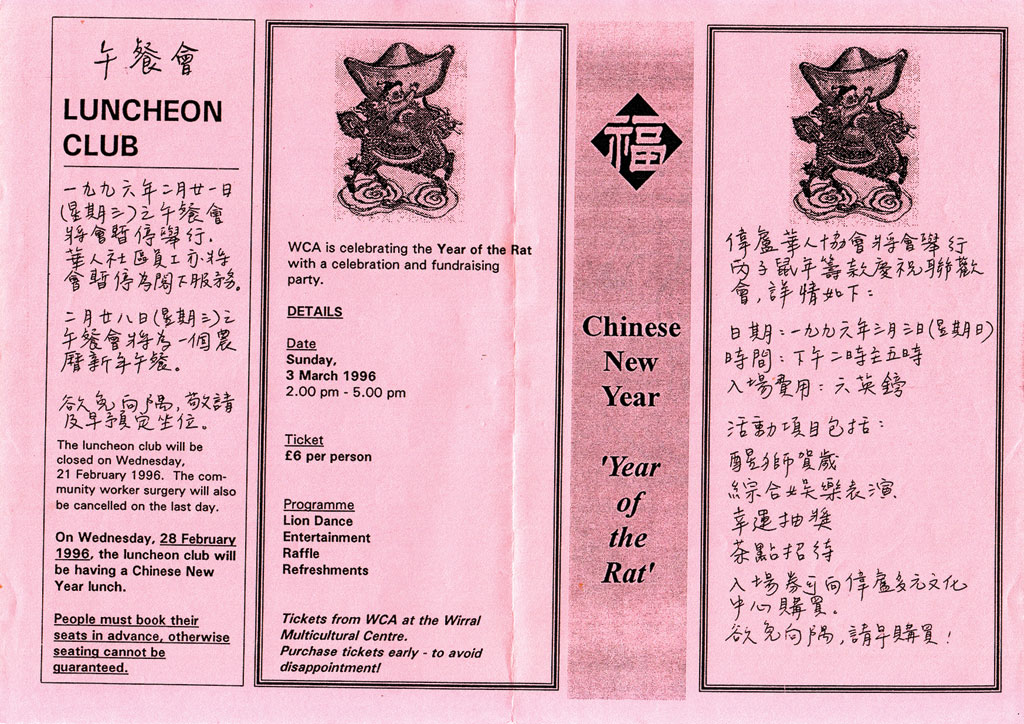 午餐會
LUNCHEON
CLUB
一九九六年二月廿一日
(星期三)之午餐會
將會暫停舉行.
華人社區員工亦將
會暫停為閣下服務。
二月廿八日(星期三)之
午餐會將為一個農
曆新年午餐。
欲免向隅,敬請
及早預定坐位。
The luncheon club will be
closed on Wednesday,
21 February 1996. The com-
munity worker surgery will also
be cancelled on the last day.
On Wednesday, 28 February
1996, the luncheon club will
be having a Chinese New
Year lunch.
People must book their
seats in advance, otherwise
seating cannot be
guaranteed.
WCA is celebrating the Year of the Rat
with a celebration and fundraising
party.
DETAILS
Date
Sunday,
3 March 1996
2.00 pm - 5.00 pm
Ticket
£6 per person
Programme
Lion Dance
Entertainment
Raffle
Refreshments
Tickets from WCA at the Wirral
Multicultural Centre.
Purchase tickets early - to avoid
disappointment!
福
Chinese
New
Year
'Year
of
the
Rat'
偉盧華人協會將會舉行
丙子鼠年籌款慶祝聯歡
會,詳情如下:
日期:一九九六年三月三日(星期日)
時間:下午二時至五時
入場費用:六英鎊
活動項目包括:
醒獅賀歲
綜合娛樂表演
幸運抽獎
茶點招待
入場券可向偉盧多元文化
中心購買。
欲免向隅,請早購買!